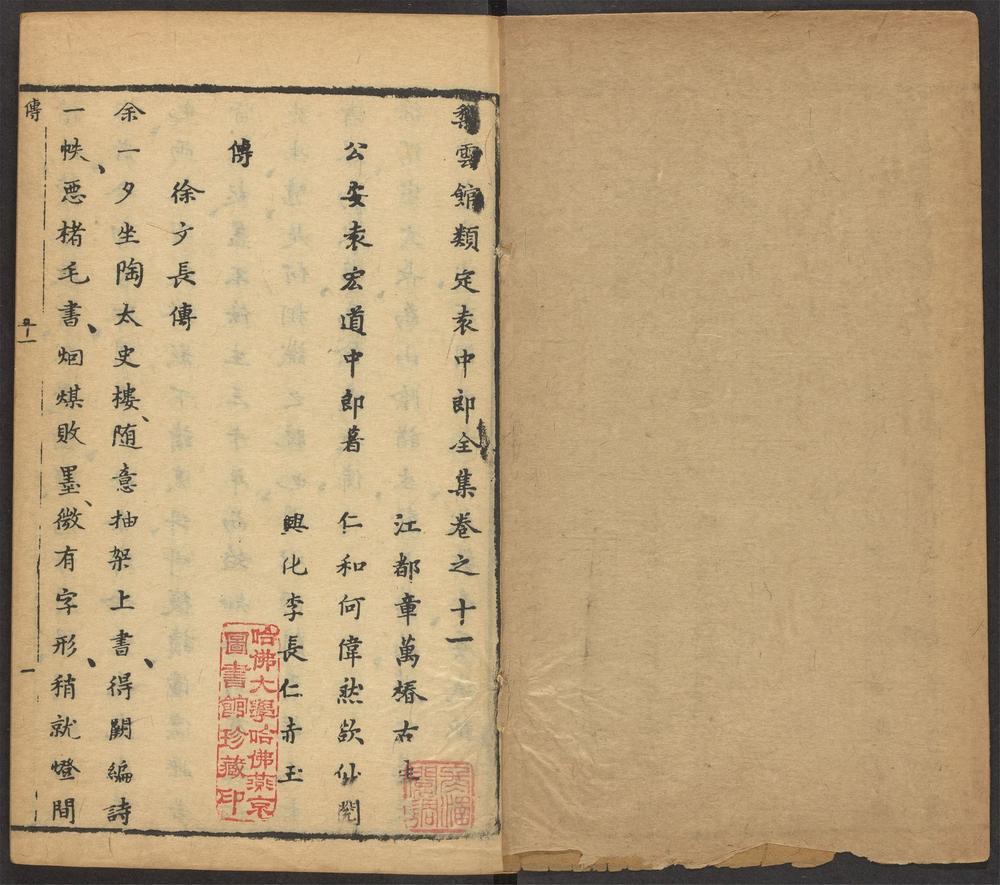 梨雲館類定袁中郎全集卷之十一
江都章萬椿古生
公安袁宏道中郎著 仁和何偉然欲仙閱
興化李長仁赤玉
傳
徐文長傳
余一夕坐陶太史樓、隨意抽架上書、得闕編詩
一帙、惡楮毛書、烟煤敗墨、微有字形、稍就燈間
傳 卷十一 一
哈佛大學哈佛燕京
圖書館珍藏印